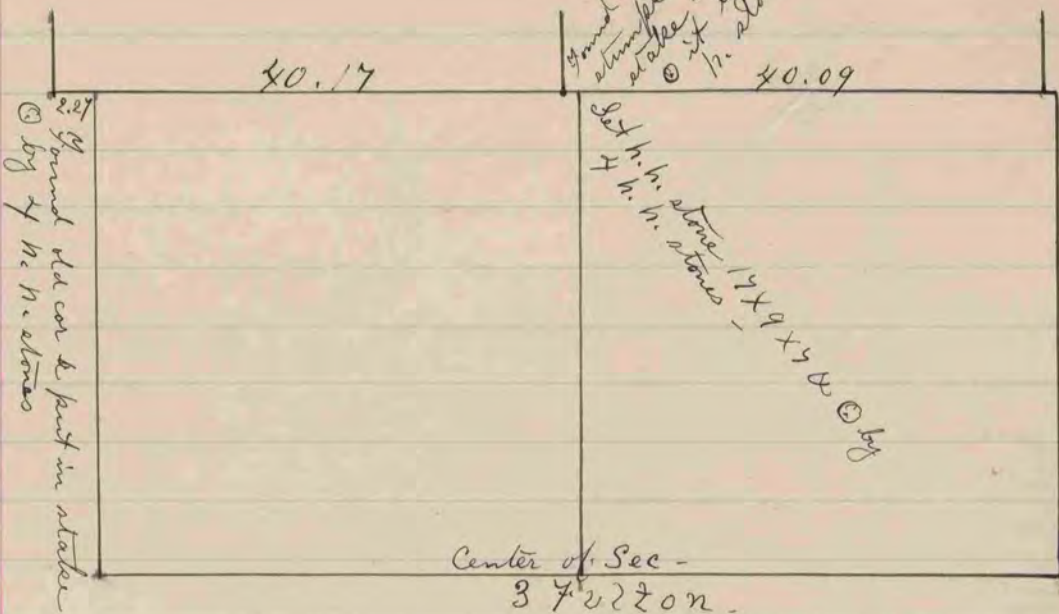 Found
stumps
stake
⊙ it
h. sto
40.17
40.09
2.27
Found old cor & put in stake
⊙ by 4 h. h. stones
Set h. h. stone 17 X 9 X 7 & ⊙ by
4 h. h. stones -
Center of Sec -